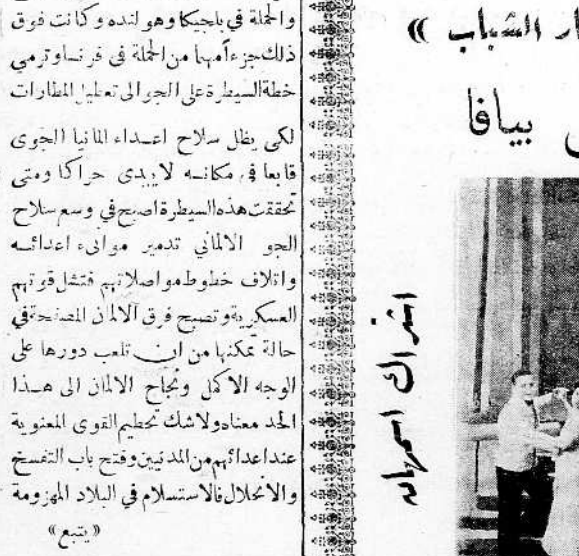 والحملة في بلجيكا وهولنده وكانت فوق
ذلك جزءاً مهما من الحملة في فرنسا وترمي
خطة السيطرة على الجو الى تعطيل المطارات
لكي يظل سلاح اعداء المانيا الجوى
قابعا في مكانه لا يبدى حراكا ومتى
تحققت هذه السيطرة اصبح في وسع سلاح
الجو الالماني تدمير موانىء اعدائه
واتلاف خطوط مواصلاتهم فتشل قوتهم
العسكرية وتصبح فرق الالمان المصفحة في
حالة تمكنها من ان تلعب دورها على
الوجه الاكمل ونجاح الالمان الى هذا
الحد معناه ولا شك تحطيم القوى المعنوية
عند اعدائهم من المدنيين وفتح باب التفسخ
والانحلال فالاستسلام في البلاد المهزومة
«يتبع»
ار الشباب »
بيافا
اشتراك اسمهان